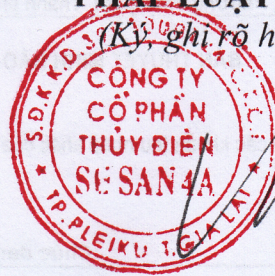 PHÁP LUẬT
(Ký, ghi rõ h
S.Đ.K.K.D
CÔNG TY
CỔ PHẦN
THỦY ĐIỆN
SÊ SAN 4A
TP.PLEIKU T.GIA LAI